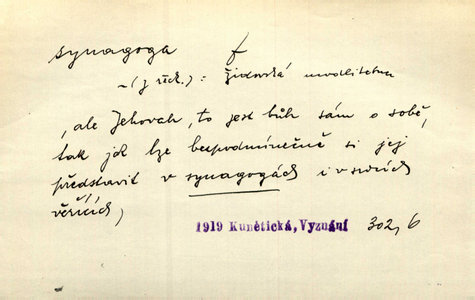 synagoga f
~ (z řeck.): židovská modlitebna
, ale Jehovah, to jest bůh sám o sobě,
tak jak lze bezpodmínečně si jej
představiti v synagogách i v srdcích
věřících,
1919 Kunětická, Vyznání 302, 6